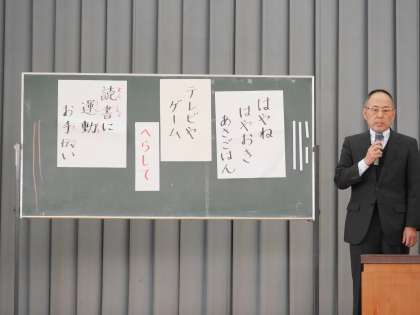 はやね
はやおき
あさごはん
テレビや
ゲーム
へらして
読書に
運動
お手伝い